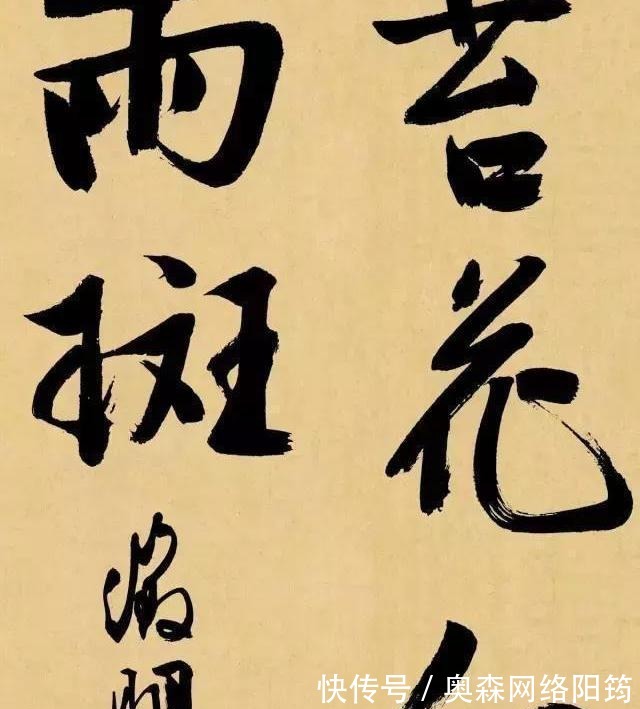 苔花
雨斑
徵明
快传号 / 奥森网络阳筠